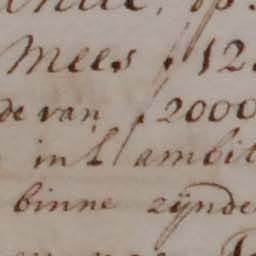 Mees ƒ 12
de van ƒ 2000
in 't ambit
binne zÿnde